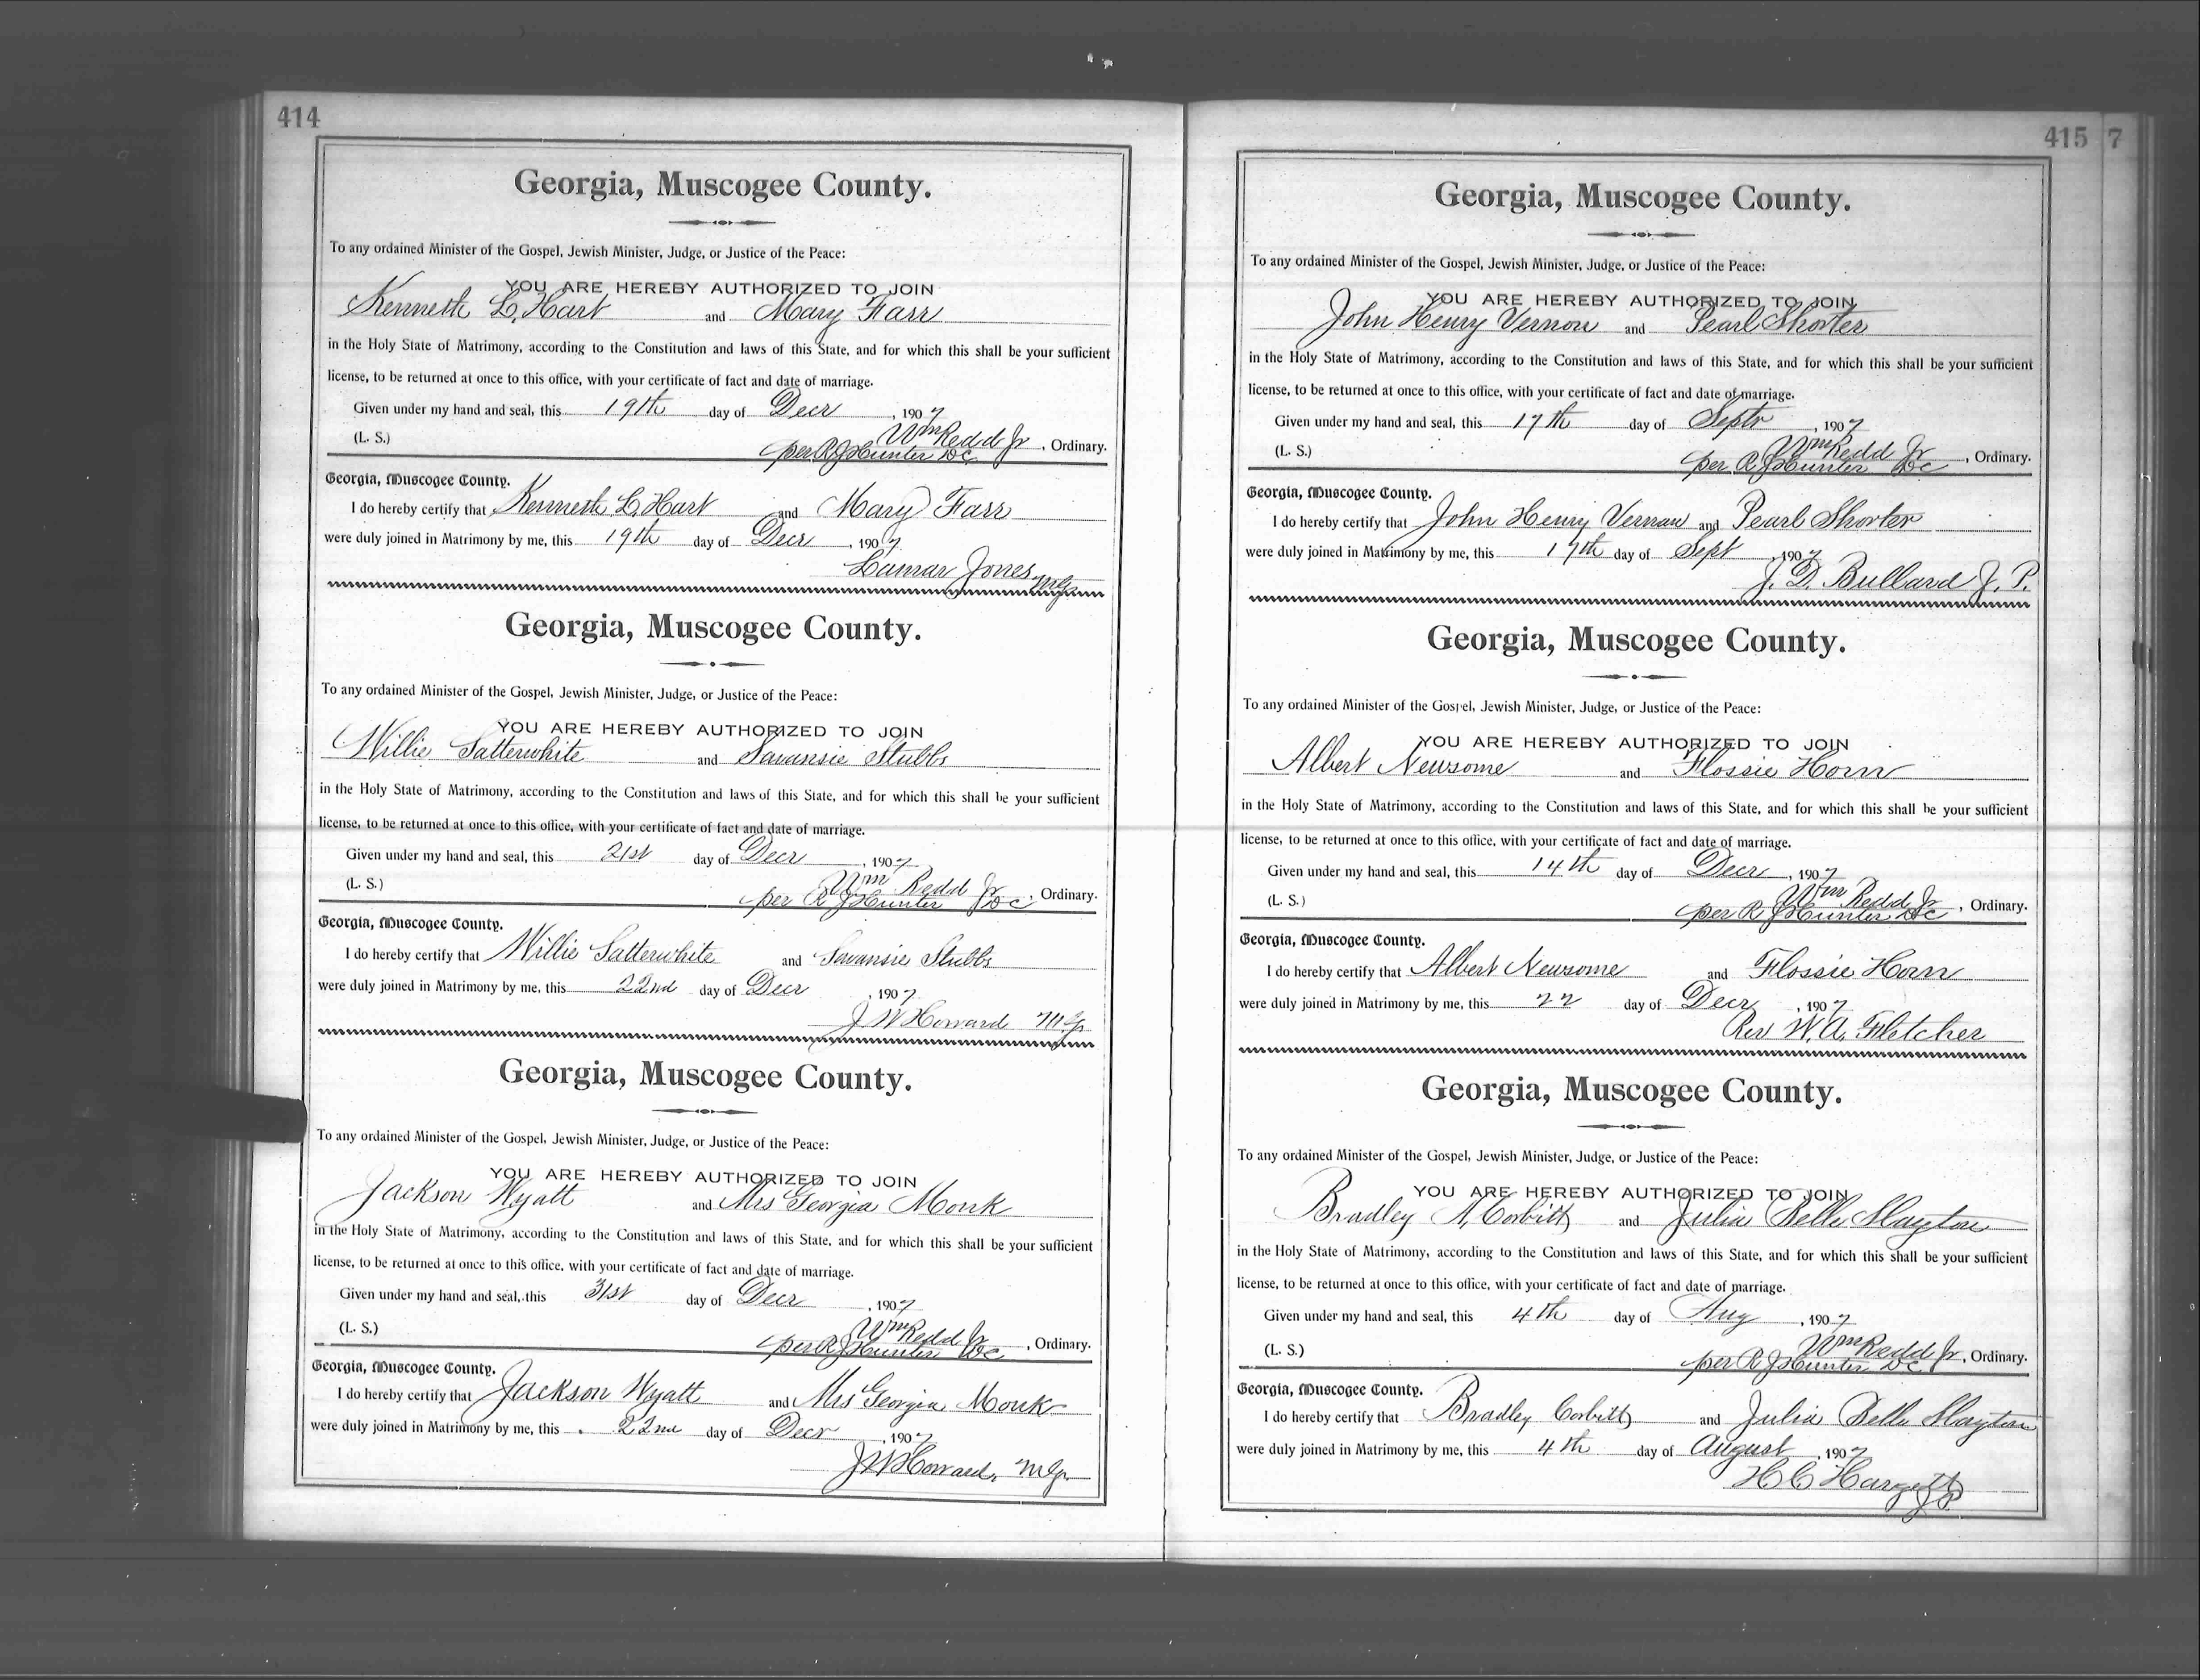 414
Georgia, Muscogee County.
To any ordained Minister of the Gospel, Jewish Minister, Judge, or Justice of the Peace:
YOU ARE HEREBY AUTHORIZED TO JOIN
Kenneth L. Hart and Mary Farr
in the Holy State of Matrimony, according to the Constitution and laws of this State, and for which this shall be your sufficient
license, to be returned at once to this office, with your certificate of fact and date of marriage.
Given under my hand and seal, this 19th day of Decr, 1907
Wm Redd Jr
(L. S.) per R J Hunter DC, Ordinary.
Georgia, Muscogee County.
I do hereby certify that Kenneth L. Hart and Mary Farr
were duly joined in Matrimony by me, this 19th day of Decr, 1907
Lamar Jones MG
Georgia, Muscogee County.
To any ordained Minister of the Gospel, Jewish Minister, Judge, or Justice of the Peace:
YOU ARE HEREBY AUTHORIZED TO JOIN
Willie Satterwhite and Savansie Stubbs
in the Holy State of Matrimony, according to the Constitution and laws of this State, and for which this shall be your sufficient
license, to be returned at once to this office, with your certificate of fact and date of marriage.
Given under my hand and seal, this 21st day of Decr, 1907
Wm Redd Jr
(L. S.) per R J Hunter DC, Ordinary.
Georgia, Muscogee County.
I do hereby certify that Willie Satterwhite and Savansie Stubbs
were duly joined in Matrimony by me, this 22nd day of Decr, 1907
J W Howard MG
Georgia, Muscogee County.
To any ordained Minister of the Gospel, Jewish Minister, Judge, or Justice of the Peace:
YOU ARE HEREBY AUTHORIZED TO JOIN
Jackson Wyatt and Mrs Georgia Monk
in the Holy State of Matrimony, according to the Constitution and laws of this State, and for which this shall be your sufficient
license, to be returned at once to this office, with your certificate of fact and date of marriage.
Given under my hand and seal, this 31st day of Decr, 1907
Wm Redd Jr
(L. S.) per R J Hunter DC, Ordinary.
Georgia, Muscogee County.
I do hereby certify that Jackson Wyatt and Mrs Georgia Monk
were duly joined in Matrimony by me, this 22nd day of Decr, 1907
J W Howard, MG
415 7
Georgia, Muscogee County.
To any ordained Minister of the Gospel, Jewish Minister, Judge, or Justice of the Peace:
YOU ARE HEREBY AUTHORIZED TO JOIN
John Henry Vernon and Pearl Shorter
in the Holy State of Matrimony, according to the Constitution and laws of this State, and for which this shall be your sufficient
license, to be returned at once to this office, with your certificate of fact and date of marriage.
Given under my hand and seal, this 17th day of Septr, 1907
Wm Redd Jr
(L. S.) per R J Hunter DC, Ordinary.
Georgia, Muscogee County.
I do hereby certify that John Henry Vernon and Pearl Shorter
were duly joined in Matrimony by me, this 17th day of Sept, 1907
J. D. Bullard J. P.
Georgia, Muscogee County.
To any ordained Minister of the Gospel, Jewish Minister, Judge, or Justice of the Peace:
YOU ARE HEREBY AUTHORIZED TO JOIN
Albert Newsome and Flossie Horn
in the Holy State of Matrimony, according to the Constitution and laws of this State, and for which this shall be your sufficient
license, to be returned at once to this office, with your certificate of fact and date of marriage.
Given under my hand and seal, this 14th day of Decr, 1907
Wm Redd Jr
(L. S.) per R J Hunter DC, Ordinary.
Georgia, Muscogee County.
I do hereby certify that Albert Newsome and Flossie Horn
were duly joined in Matrimony by me, this 22 day of Decr, 1907
Rev W. A. Fletcher
Georgia, Muscogee County.
To any ordained Minister of the Gospel, Jewish Minister, Judge, or Justice of the Peace:
YOU ARE HEREBY AUTHORIZED TO JOIN
Bradley A, Corbitt and Julia Belle Slayton
in the Holy State of Matrimony, according to the Constitution and laws of this State, and for which this shall be your sufficient
license, to be returned at once to this office, with your certificate of fact and date of marriage.
Given under my hand and seal, this 4th day of Aug, 1907
Wm Redd Jr
(L. S.) per R J Hunter DC, Ordinary.
Georgia, Muscogee County.
I do hereby certify that Bradley Corbitt and Julia Belle Slayton
were duly joined in Matrimony by me, this 4th day of August, 1907
H C Hargett
JP